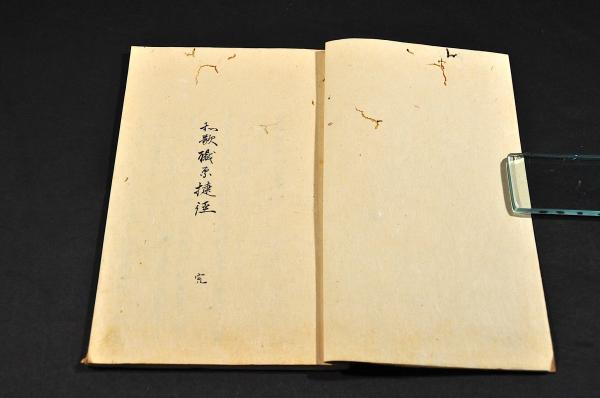 和歌職原捷徑
完